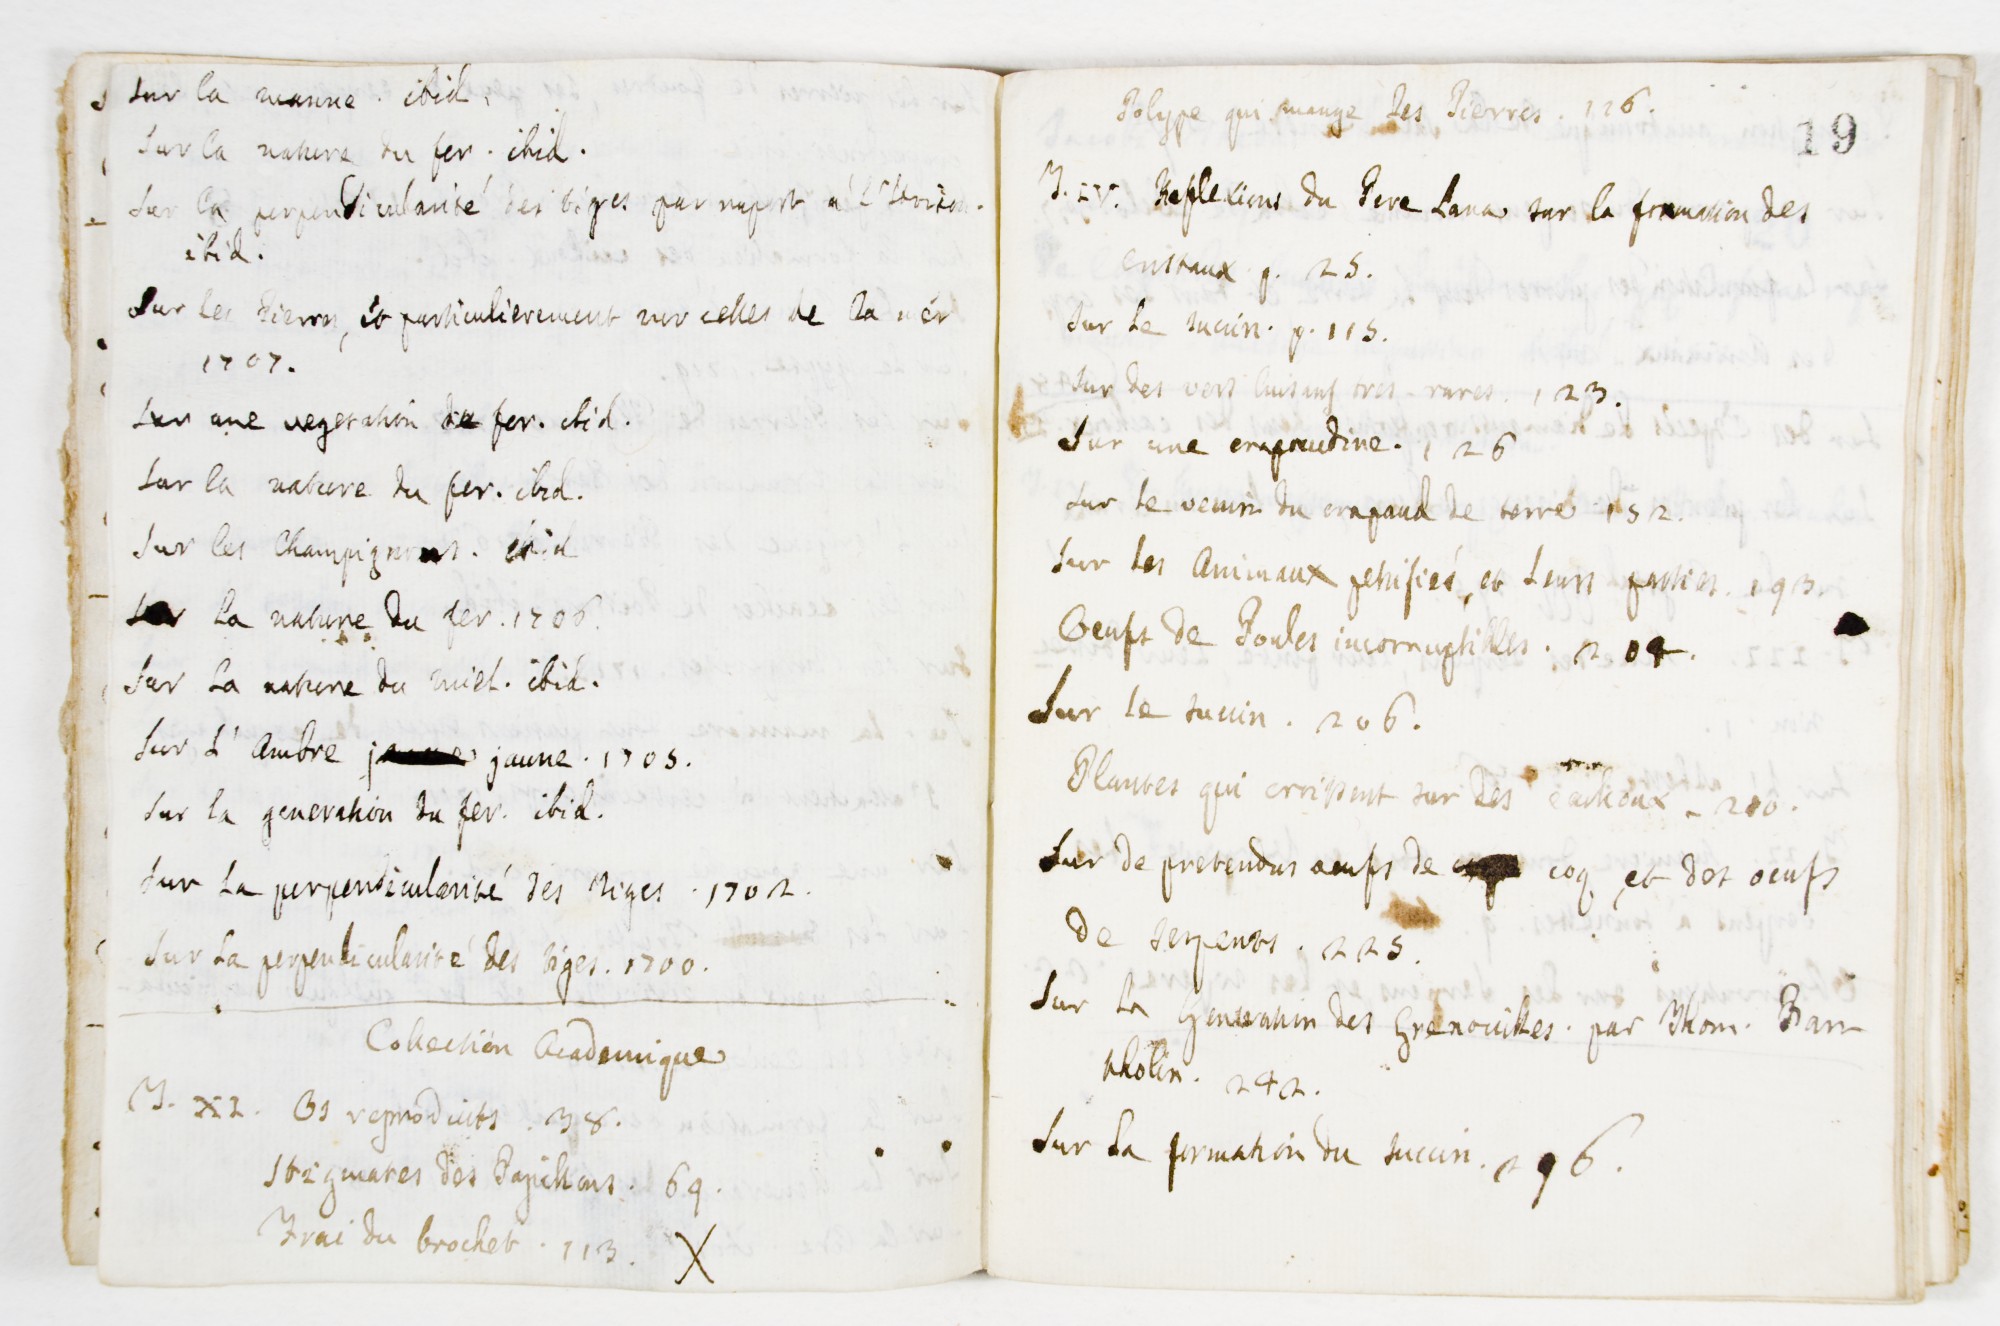 Sur la manne. ibid.
Sur la nature du fer. ibid.
Sur la perpendicularité des tiges par raport à L'Horizon.
ibid.
Sur les Pierres, et particulierement sur celles de la mer
1707.
Sur une vegetation de fer. ibid.
Sur la nature du fer. ibid.
Sur les Champignons. ibid
Sur la nature du fer. 1706.
Sur la nature du miel. ibid.
Sur L'Ambre jaune. 1705.
Sur la generation du fer. ibid.
Sur la perpendicularité des tiges. 1702.
Sur la perpendicularité des tiges. 1700.
Collection Academique
T. XI. Os reproduits. 38.
Stigmates des Papillons. 69.
Frai du brochet. 113. X
Polype qui mange des Pierres. 126.
19
T. IV. Reflexions du Pere Lana sur la formation des
cristaux. p. 25.
Sur le succin. p. 115.
Sur des vers luisans tres-rares. 123.
Sur une crapaudine. 126
Sur le venin du crapaud de terre. 152.
Sur les Animaux petrifiés, et leurs parties. 193.
Oeufs de Poules incorruptibles. 204.
Sur le succin. 206.
Plantes qui croissent sur des cailloux. 210.
Sur de pretendus oeufs de coq, et des oeufs
de serpents. 225.
Sur la Generation des Grenouilles. par Thom. Bar-
tholin. 242.
Sur la formation du succin. 296.